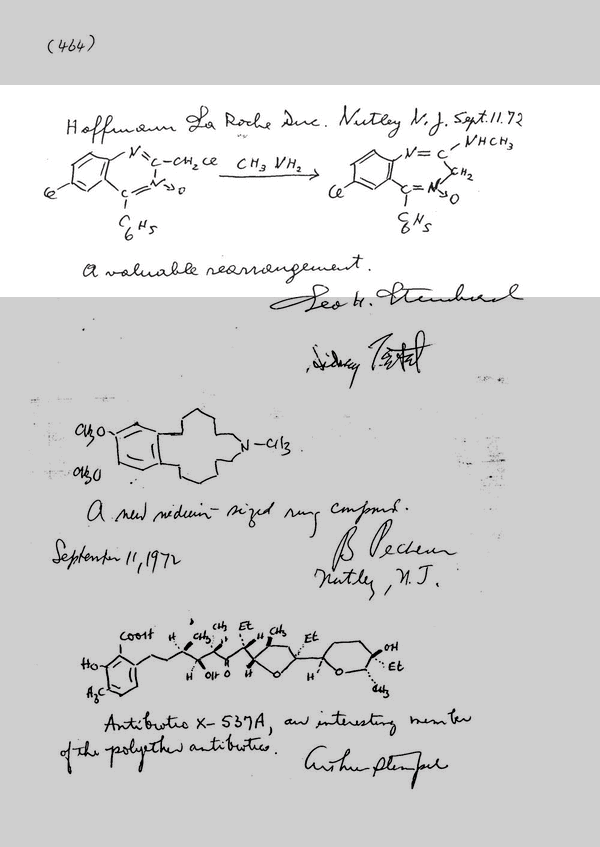 (464)
Hoffmann La Roche Inc. Nutley N.J. Sept. 11. 72
N = C - NHCH3
N = C - CH2 Cl CH3 NH2 CH2
Cl C = N → O Cl C = N → O
C6H5 C6H5
A valuable rearrangement.
Leo H. Sternbach
Sidney
CH3O N - CH3
CH3O
A new medium-sized ring compound.
September 11, 1972
B Pecherer
Nutley, N.J.
COOH H CH3 CH3 Et H CH3 Et OH
HO Et
H3C H OH O H O H O CH3
Antibiotic X-537A, an interesting member
of the polyether antibiotics.
Arthur Stempel